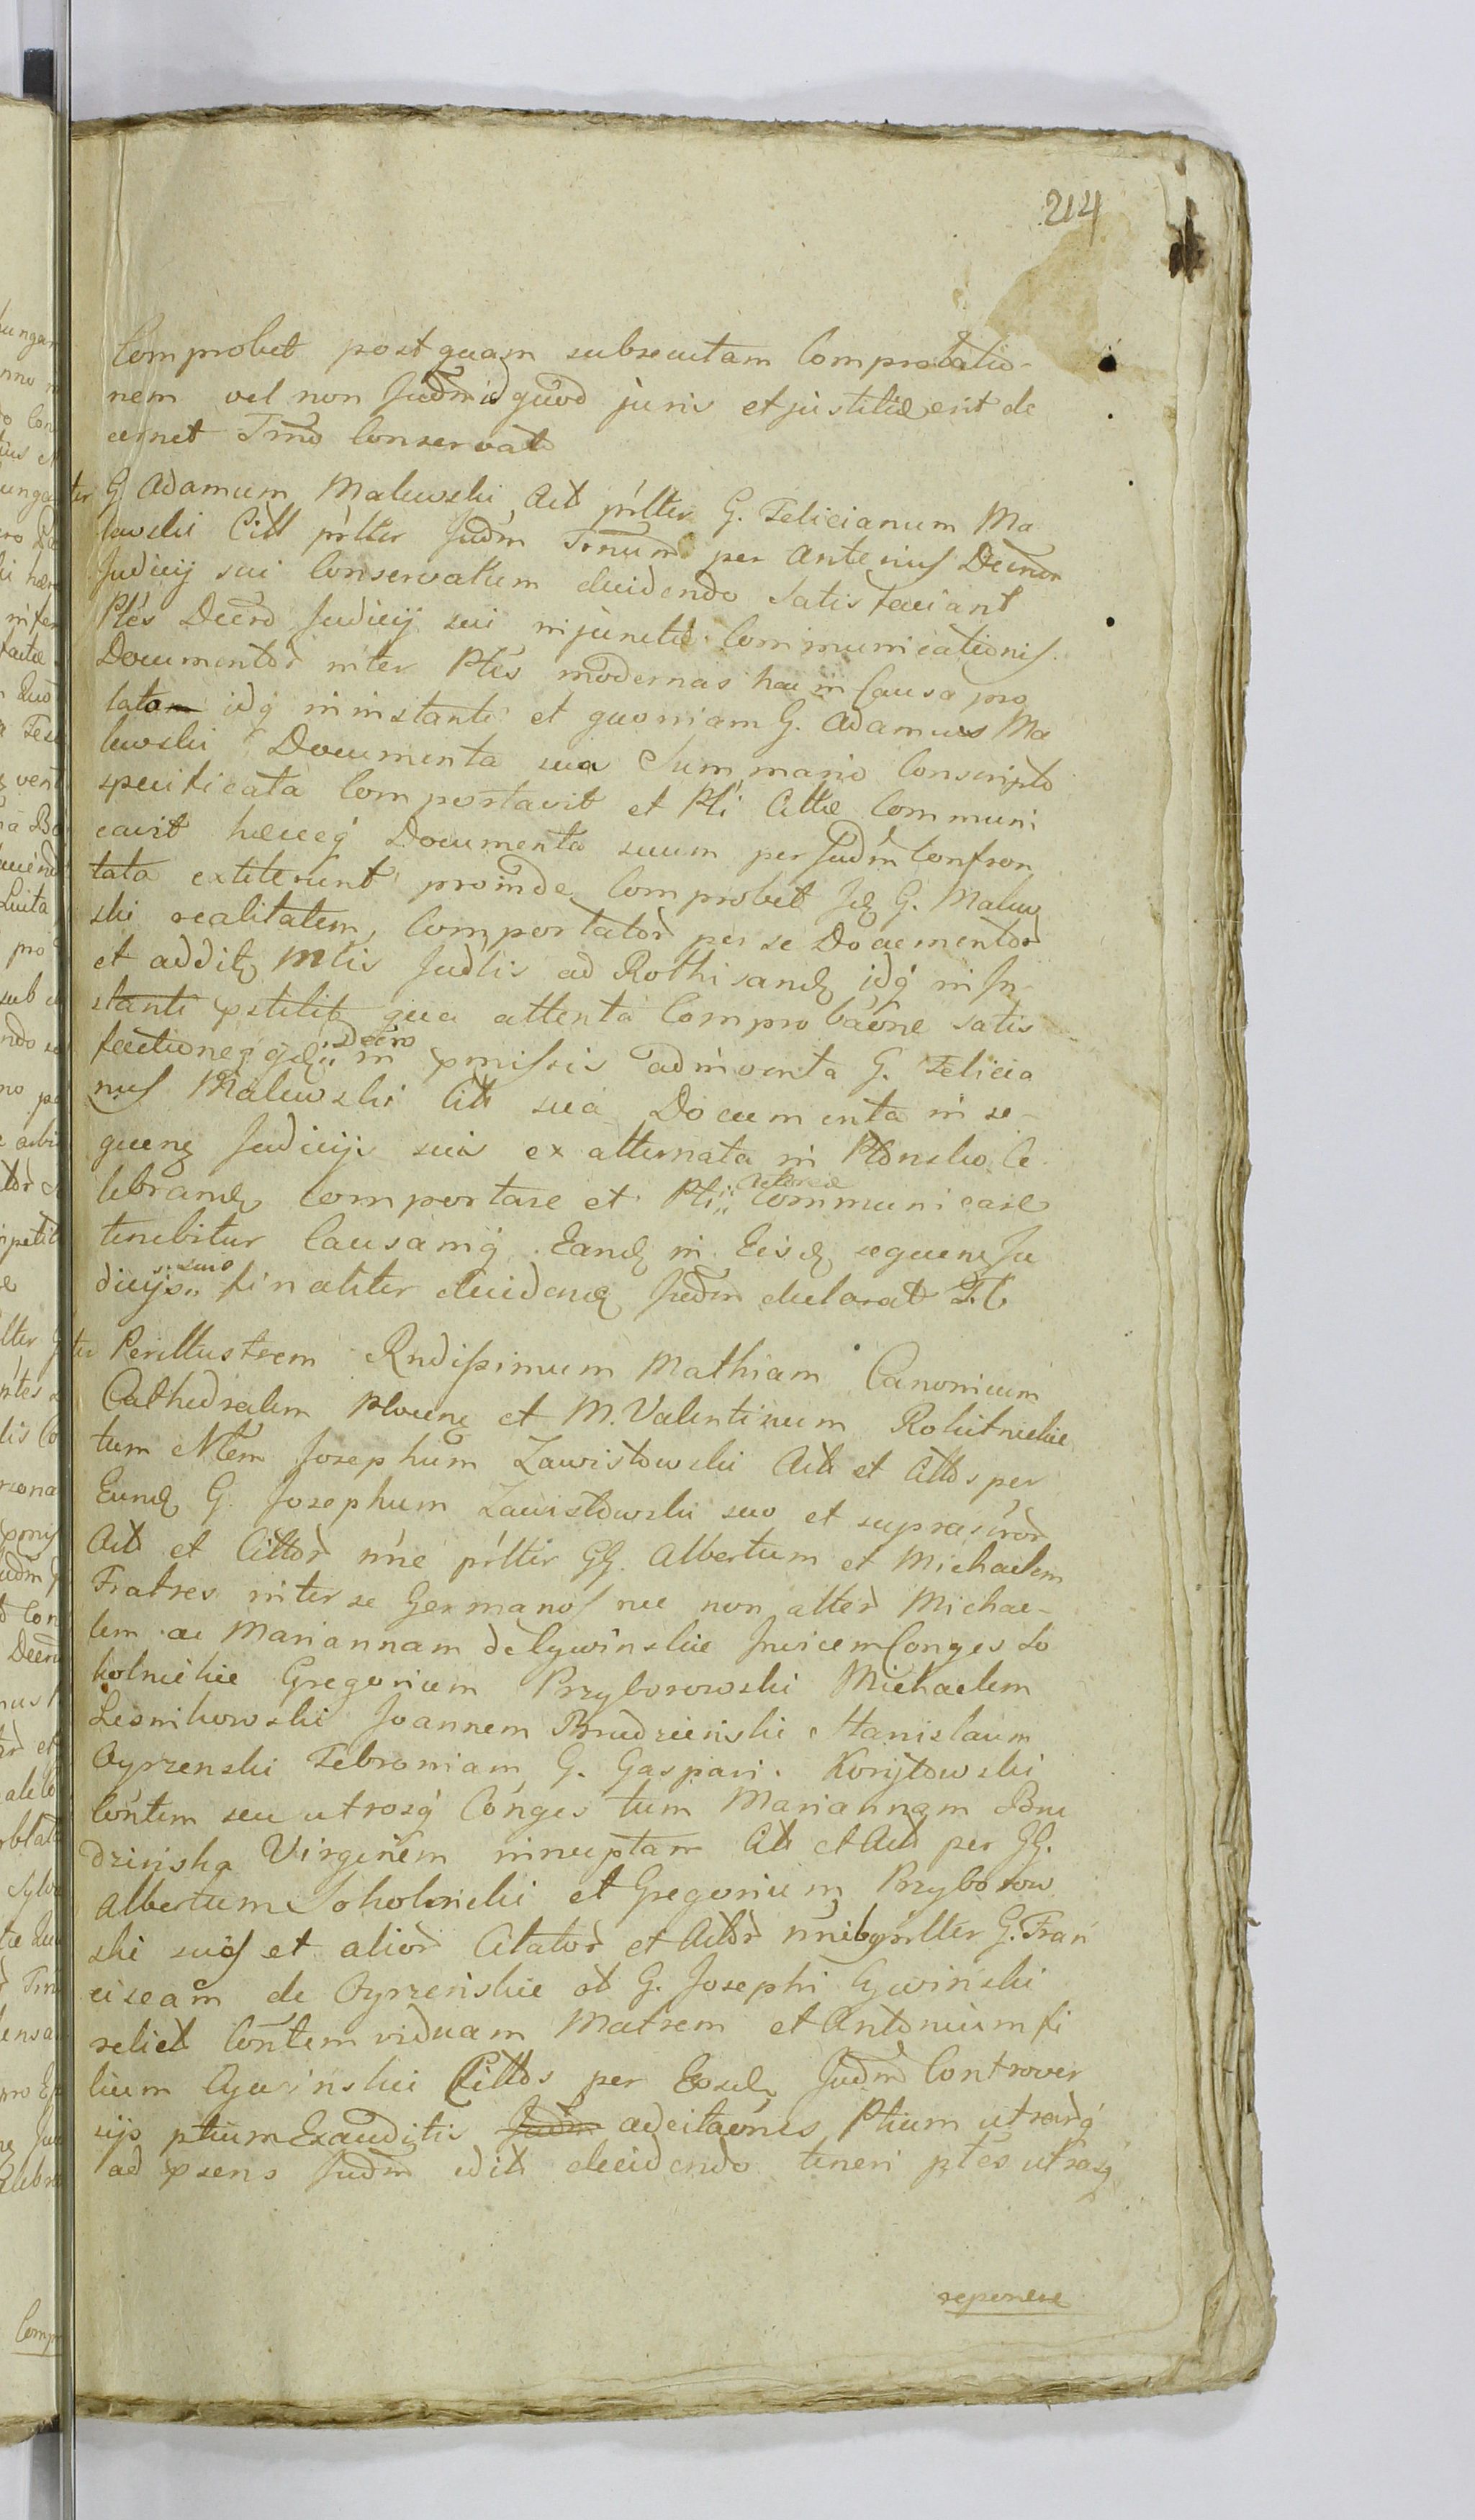 214
Comprobet postquam subsecutam Comprobatio-
nem vel non Judm id quod juris et justitiæ erit de
cernet Trno Conservato
ter G. Adamum Malewski Act prltter G. Felicianum Ma
lewski Citt prltter Judm Trnum per anterius Decrum
Judicij sui Conservatum decidendo satisfaciant
Ptes Decro Judicij sui injunctæ Communicationis
Documentor inter Ptes modernas hac in Causa pro
lato idq in instanti et quoniam G. Adamus Ma
lewski Documenta sua Summario Conscripto
specificata Comportavit et Pti Cittæ Communi
cavit hæceq Documenta secum per Judm Confron
tata extiterunt proinde Comprobet G. Malew
ski realitatem Comportator per se Documentor
et addit Mtis Judlis ad Rothisand idq in In-
stanti pstitit qua attenta Comprobaone satis
factioneq Decro in pmissis adinventa G. Felicia
nus Malewski Citt sua Documenta in se-
quenq Judicijs suis ex alternata in Płonsko Ce
lebrand comportare et Pti Actoreæ Communicare
tenebitur Causamq Eand in Eisd sequenq Ju
dicijs suis finaliter decidend Judm declarat T. C.
ter Perillustrem Rndissimum Mathiam Canonicum
Cathedralem Plocenq et M. Valentinum Rokitnickie
tum Ntem Josephum Zawistowski Act et Cittos per
Eund G. Josephum Zawistowski suo et suprascror
Act et Cittor nne prltter GG. Albertum et Michaelem
Fratres inter se Germanos nec non alter Michae-
lem ac Mariannam de Cywinskie Invicem Conges So
kolnickie Gregorium Przyborowski Michaelem
Lesnikowski Joannem Brudzieński Stanislaum
Oyrzenski Febroniam G. Gaspari Korytowski
Contem seu utrosq Conges tum Mariannam Bru
dzińska Virginem innuptam Citt et Act per GG.
Albertum Sokolnicki et Gregorium Przyborow
ski suis et alior Citator et Actor nnibq prltter G. Fran
ciscam de Oyrzenskie ol G. Josephi Cywiński
relict Contem viduam Matrem et Antonium fi
lium Cywinski Cittos per Eosd Judm Controver
sijs ptium Exauditis Judm ad citaones Ptium utrarq
ad psens Judm edit decidendo teneri ptes utrasq
reponere